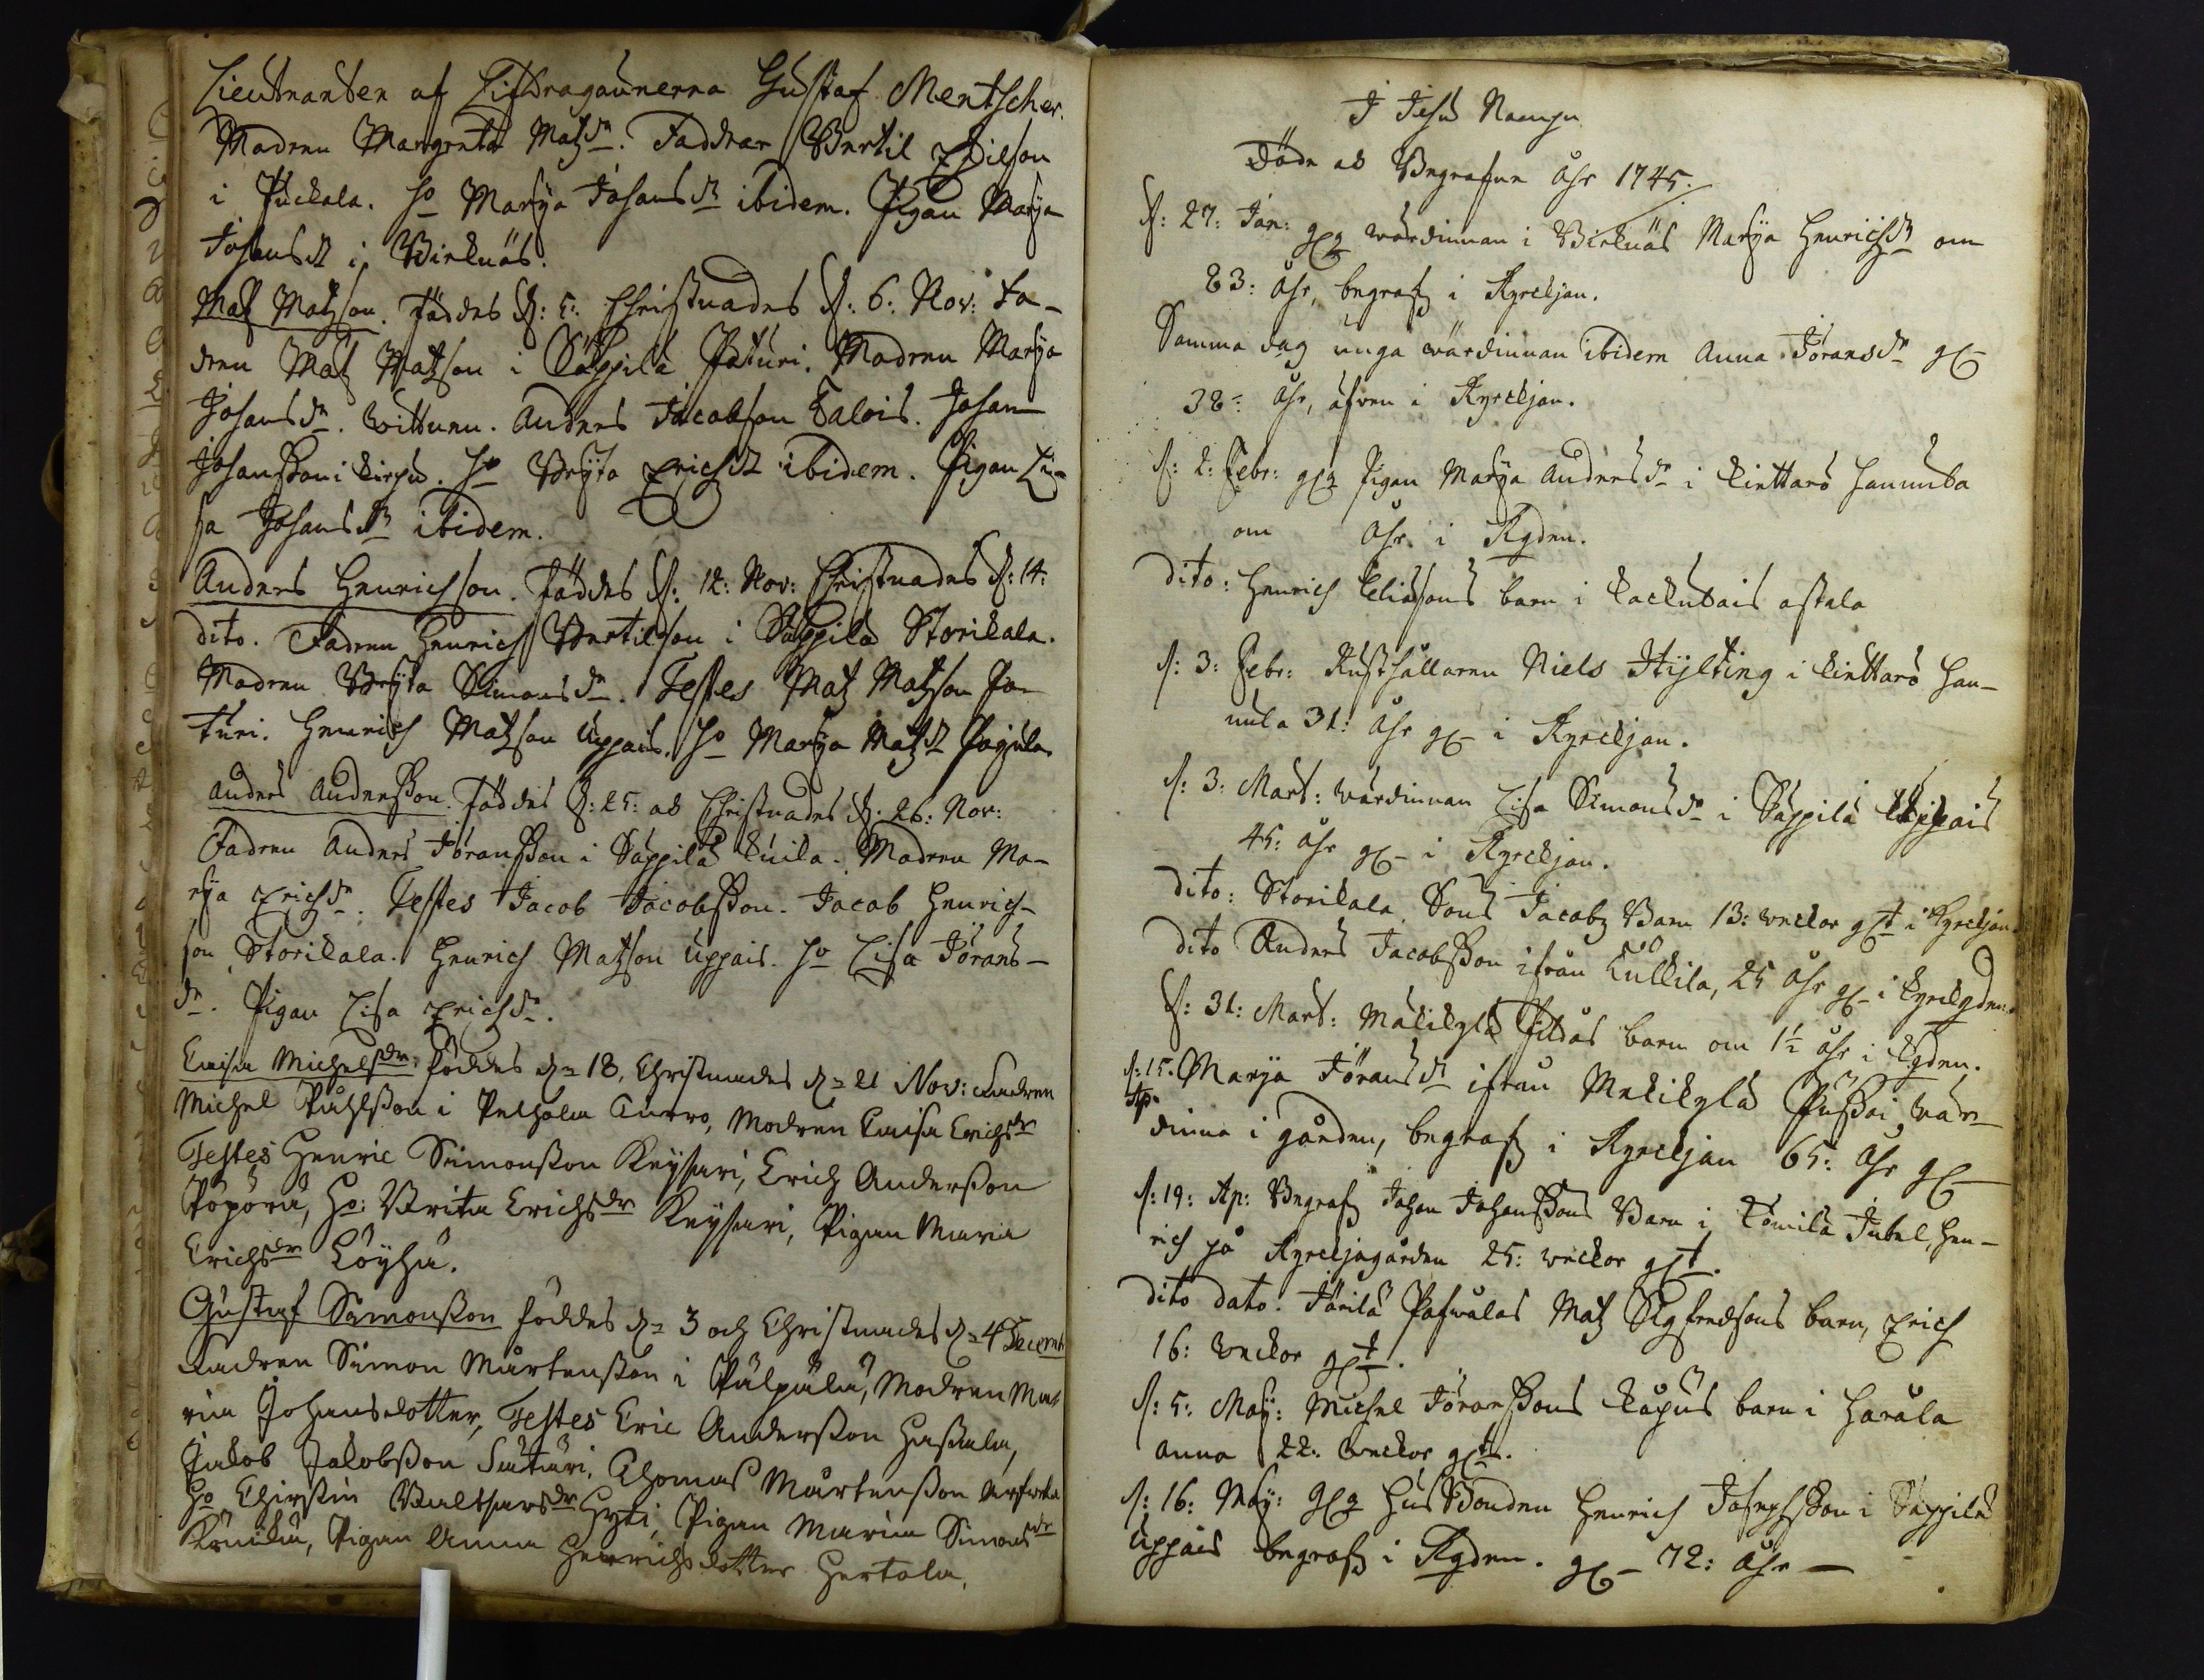 Lieutnanten af Lifdragaunerna Gustaf Mentscher.
Modren Margreta Matzdr. Faddrar Bertil Ersson
i Puckala. Ho Marja Johansdr ibidem. Pigan Marja
Johansdr i Birknäs.
Matz Matzson. Föddes d: 5: Christnades d: 6: Nov: Fa-
dren Matz Matzson i Säppilä Paturi. Modren Marja
Johansdr. vittnen. Anders Jacobson Talois. Johan
Johansson i Kirpu. Ho Brÿta Erichsdr ibidem. Pigan Li-
sa Johansdr ibidem.
Anders Henrichson. Föddes d: 12: Nov: Christnades d: 14:
dito. Fadren Henrich Bertilson i Säppilä Storikala.
Modren Brÿta Simonsdr. Testes Matz Matzson Pa-
turi. Henrich Matzson Uppais. Ho Marja Matzdr Pajula
Anders Andersson. Föddes d: 25: ock Christnades d: 26: Nov:
Fadren Anders Jöransson i Säppilä Knila. Modren Ma-
rja Erichsdr. Testes Jacob Jacobsson. Jacob Henrich-
son Storikala. Henrich Matzson Uppais. Ho Lisa Jörans-
dr. Pigan Lisa Erichsdr.
Caisa Michelsdr föddes dn 18, Christnades dn 21 Nov: Fadren
Michel Påhlsson i Pelhola Anttro, Modren Caisa Erichsdr
Testes Henric Simonsson Keysari, Erich Andersson
Pöpörä, Ho: Brita Erichsdr Keysari, Pigan Maria
Erichsdr Löyhä.
Gustaf Simonsson föddes dn 3 och Christnades dn 4 Decemb
Fadren Simon Mårtensson i Pälpälä, Modren Ma-
ria Johansdotter, Testes Eric Andersson Hassala,
Jakob Jakobsson Sutari, Thomas Mårtensson
Ho Chirstin Balthsarsdr Hyti, Pigan Maria Simonsdr
Könikä, Pigan Anna Henrichsdotter Hertola.
I Jesu Nampn
Döde ock Begrafne Åhr 1745.
d: 27: Jan: värdinnan i Birknäs Marja Henrichsdr om
83: Åhr, begrafz i Kyrckjan.
Samma dag unga värdinnan ibidem Anna Jöransdr
38: Åhr, äfven i Kyrckjan.
d: 2: Febr: Pigan Marja Andersdr i Kinttarö Hannula
om Åhr. i Kgden.
dito: Henrich Eliasons barn i Kackutais astala
d: 3: Febr: Rusthållaren Niels Stÿlting i Kinttarö Han-
nula 31: Åhr i Kyrckjan.
d: 3: Mart: Värdinnan Lisa Simonsdr i Säppilä Uppais
45: Åhr i Kyrckjan.
dito: Storikala Sons Jacobz Barn 13: veckor i Kyrckjan.
dito Anders Jacobsson ifrån Kullila, 25 Åhr i Kyrckgden.
d: 31: Mart: Mälikylä barn om 1½ åhr i Kgden.
d: 15. Ap. Marja Jöransdr ifrån Melikylä Pussoi, Vär-
dinna i gården, begrafz i Kyrckjan 65: Åhr
d: 19: Ap: Begrafz Johan Johanssons Barn i Tömilä Jutel, Hen-
rich på Kyrckjogården 25: veckor
dito dato. Järilä Pasvalas Matz Sigfredsons barn, Erich
16: Veckor
d: 5: Maÿ: Michel Jöranssons Käpüs barn i Harola
Anna 22: veckor
d: 16: Maÿ: Husbonden Henrich Josephsson i Säppilä
Uppais begrafz i Kgden. 72: Åhr